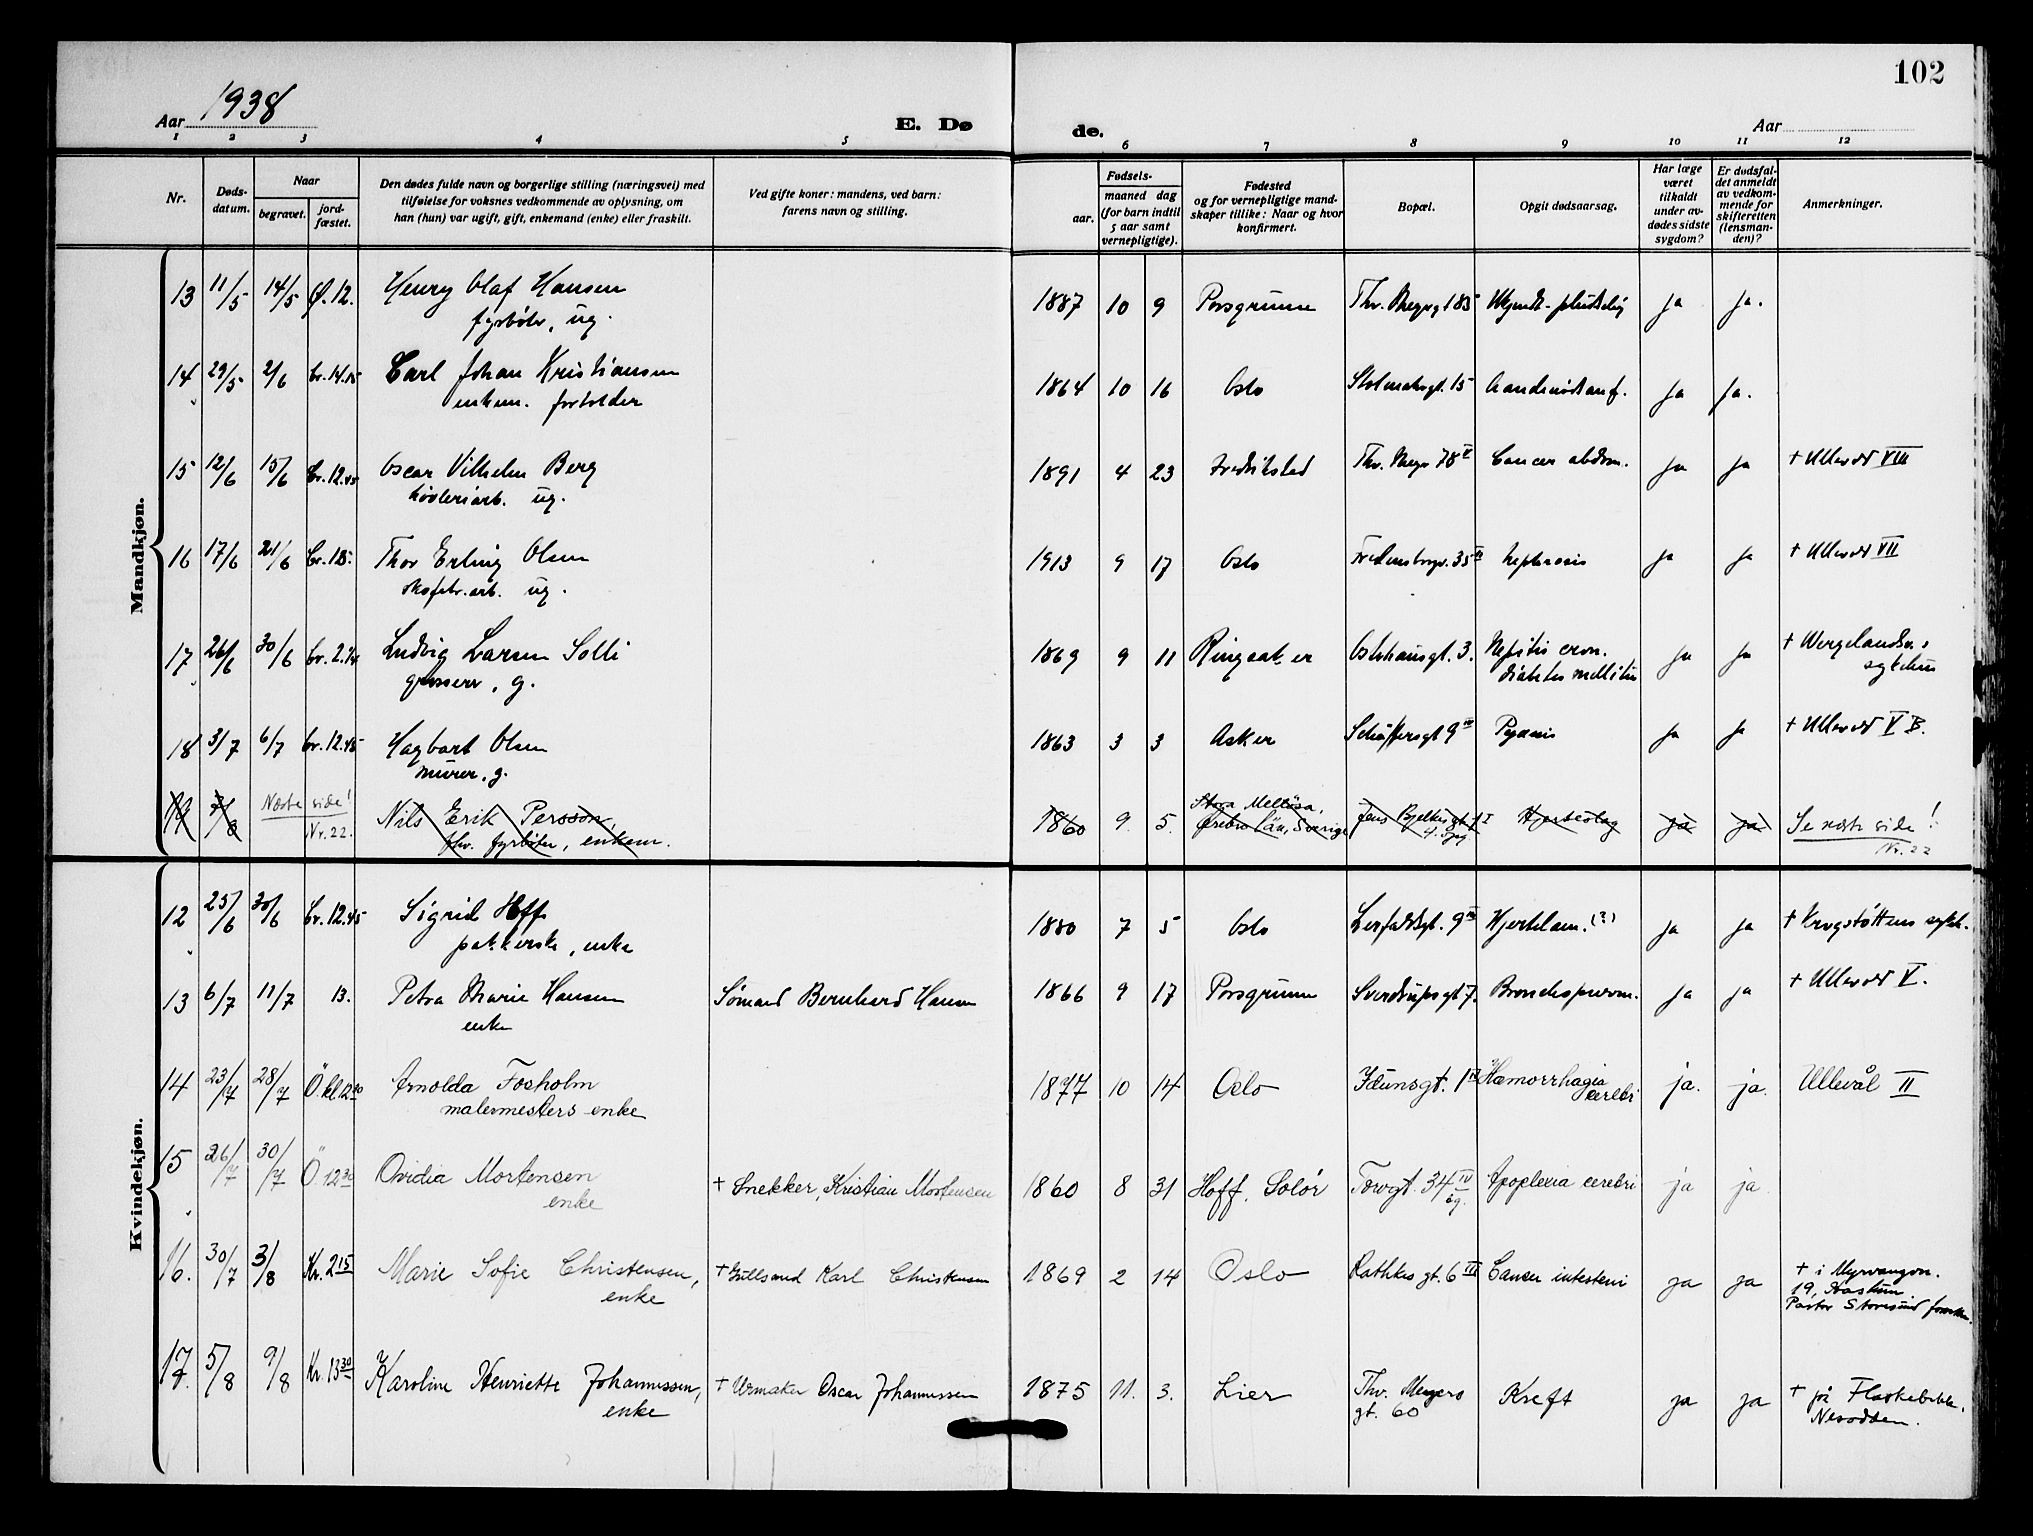 102
Aar 1938
E. Dø
de.
Aar
1 2 3 4 5 6 7 8 9 10 11 12
Nr.
Døds-
datum.
Naar
begravet.
jord-
fæstet.
Den dødes fulde navn og borgerlige stilling (næringsvei) med
tilføielse for voksnes vedkommende av oplysning, om
han (hun) var ugift, gift, enkemand (enke) eller fraskilt.
Ved gifte koner: mandens, ved barn:
farens navn og stilling.
Fødsels-
aar.
maaned dag
(for barn indtil
5 aar samt
vernepligtige).
Fødested
og for vernepligtige mand-
skaper tillike: Naar og hvor
konfirmert.
Bopæl.
Opgit dødsaarsag.
Har læge
været
tilkaldt
under av-
dødes sidste
sygdom?
Er dødsfal-
det anmeldt
av vedkom-
mende for
skifteretten
(lensman-
den)?
Anmerkninger.
Mandkjøn.
13 11/5 14/5 Ø. 12. Henry Olaf Hansen 1887 10 9 Porsgrunn Thv. Meyersgt 85 Ukjendt - plutselig ja ja.
fyrbøter, ug.
14 29/5 2/6 Cr. 14.15 Carl Johan Kristiansen 1864 10 16 Oslo 15 Aandenødsanf. ja ja.
enkem. forbolder
15 12/6 15/6 Cr. 12.45 Oscar Vilhelm Berg 1891 4 23 Fredrikstad Thv. Meyer 78 V Cancer abdom. ja ja + Ullevål VIII
høvleriarb. ug.
16 17/6 21/6 Cr. Thor Erling Olsen 1913 9 17 Oslo Fredensborgv. 35 II Nephrosis ja ja + Ullevål VII
skofabr.arb. ug.
17 26/6 30/6 Cr. Ludvig Larsen Solli 1869 9 11 Ringsaker Osterhausgt. 3. Nefritis cron. ja ja + Wergelandsv.s
grosserer, g. diabetes mellitus sykehus
18 3/7 6/7 Cr. 12.45 Hagbart Olsen 1863 3 3 Asker Schäffersgt 9 Pyæmis ja ja + Ullevål V B.
murer, g.
19 7/8 Næste side! Nils Erik Persson, 1860 9. 5. Stora Mellösa, Jens Bjelkesgt. 1 I Hjerteslag ja ja Se næste side!
Nr. 22. fhv. fyrbøter, enkem. Ørebro län, Sverige Nr. 22
Kvindekjøn.
12 25/6 30/6 Cr. 12.45 Sigrid Hoff 1880 7 5 Oslo Lerfaldsgt. 9 III Hjertelam. (?) ja ja + Krogstøttens sykh.
pakkerske, enke
13 6/7 11/7 13. Petra Marie Hansen Sømand Bernhard Hansen 1866 9 17 Porsgrunn Sverdrupsgt 7. Bronchopneum. ja ja + Ullevål V.
enke
14 23/7 28/7 Ö kl 12 30 Arnolda Fosholm 1877 10 14 Oslo Idunsgt. 1 IV Hæmorrhagia ja. ja. Ullevål II
malermesters enke cerebri
15 26/7 30/7 Ö 12 30 Ovidia Mortensen + Snekker, Kristian Mortensen 1860 8 31 Hoff, Solør Torvgt. 34 IV Apoplexia cerebri ja ja
enke og.
16. 30/7 3/8 Kr. 2 15 Marie Sofie Christensen, + Gullsmed Karl Christensen 1869 2 14 Oslo Rathkes gt. 6 III Cancer intesteni ja ja + i Myrvangen.
enke 19, Pastor Storesund
17. 5/8 9/8 Kr. 13 30 Karoline Henriette Johannessen, + Urmaker Oscar Johannessen 1875 11. 3. Lier Thv. Meyers Kreft ja ja + på Flaskebekk,
enke gt. 60 Nesodden.